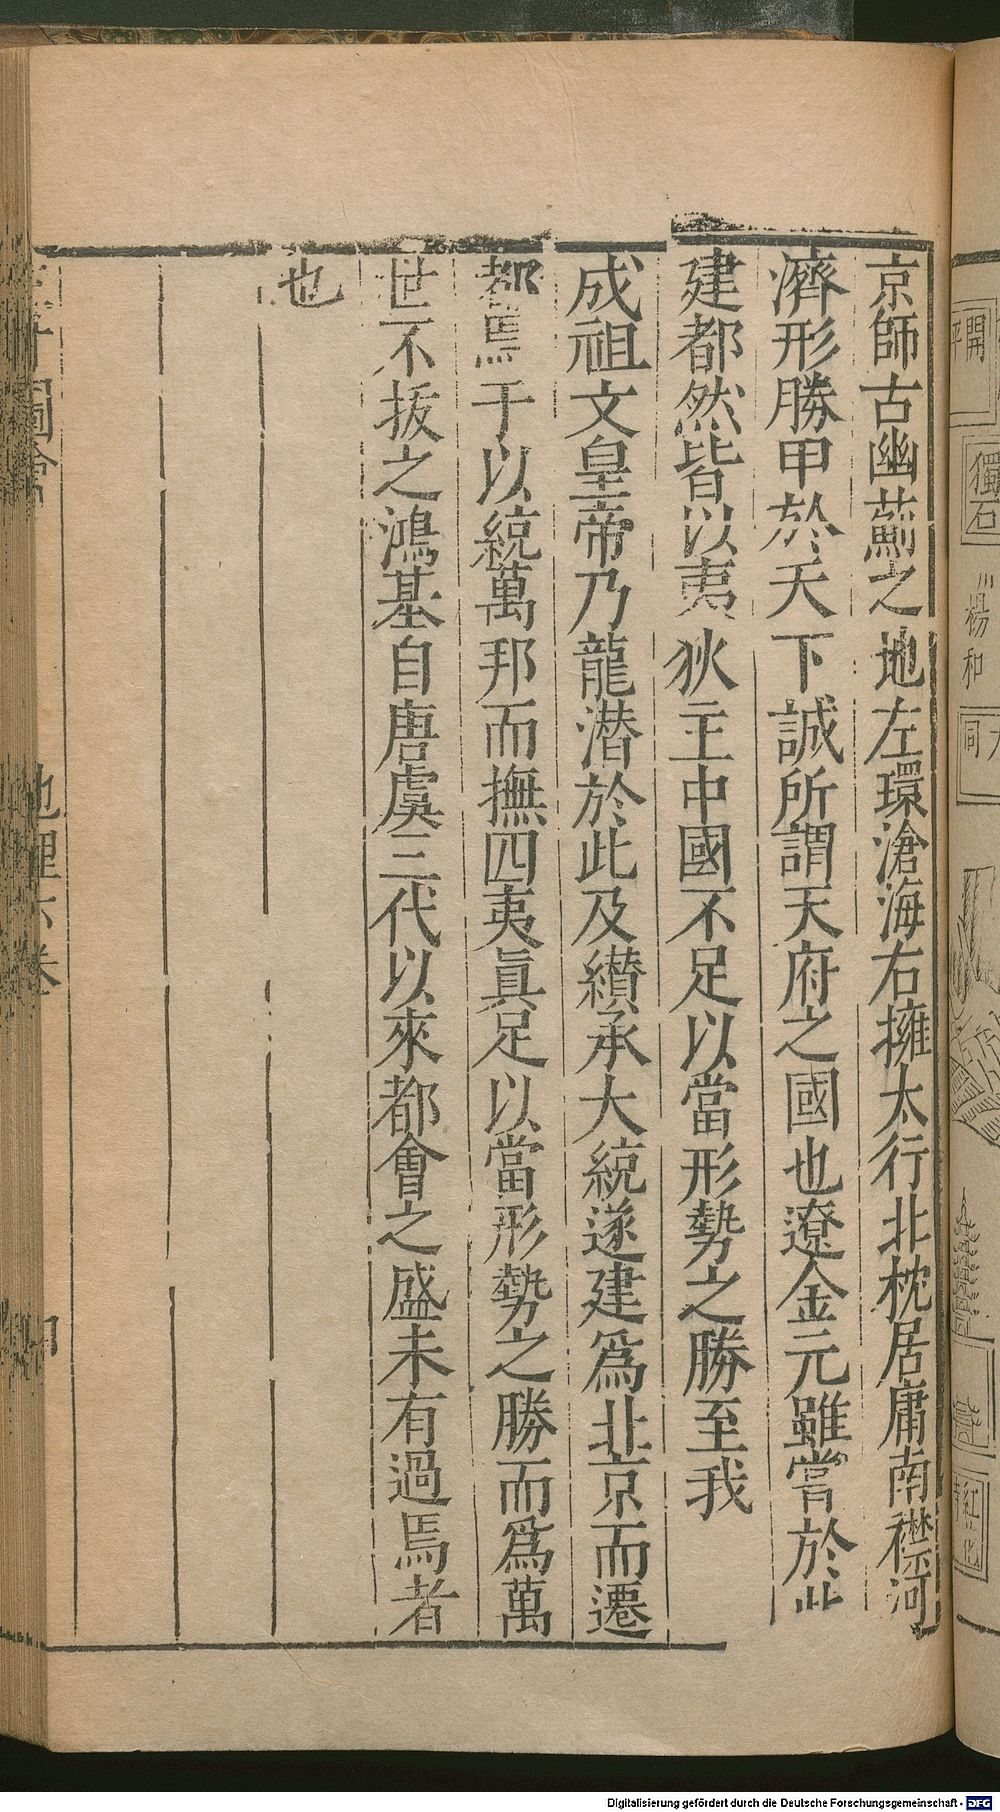 京師古幽薊之地左環滄海右擁太行北枕居庸南襟河
濟形勝甲於天下誠所謂天府之國也遼金元雖嘗於此
建都然皆以夷狄主中國不足以當形勢之勝至我
成祖文皇帝乃龍潛於此及纘承大統遂建爲北京而遷
都焉于以統萬邦而撫四夷眞足以當形勢之勝而爲萬
世不拔之鴻基自唐虞三代以來都會之盛未有過焉者
也
地理六卷
開
獨石
楊和
Digitalisierung gefördert durch die Deutsche Forschungsgemeinschaft - DFG